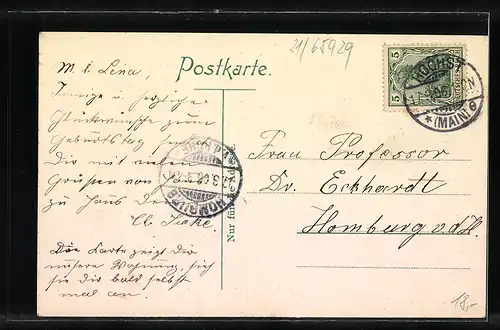 21/65929
Postkarte.
M. l. Lena,
Innige u. herzliche
Glückwünsche zum
Geburtstag sendet
Dir mit vielen
Grüßen von Haus
zu Haus Deine
Die Karte zeigt Dir
unsere Wohnung, sieh
sie dir bald selbst
mal an.
Nur für
5 5
HÖCHST
(MAIN)
HOMBURG
Frau Professor
Dr. Eckhardt
Homburg v.d.H.
18,-